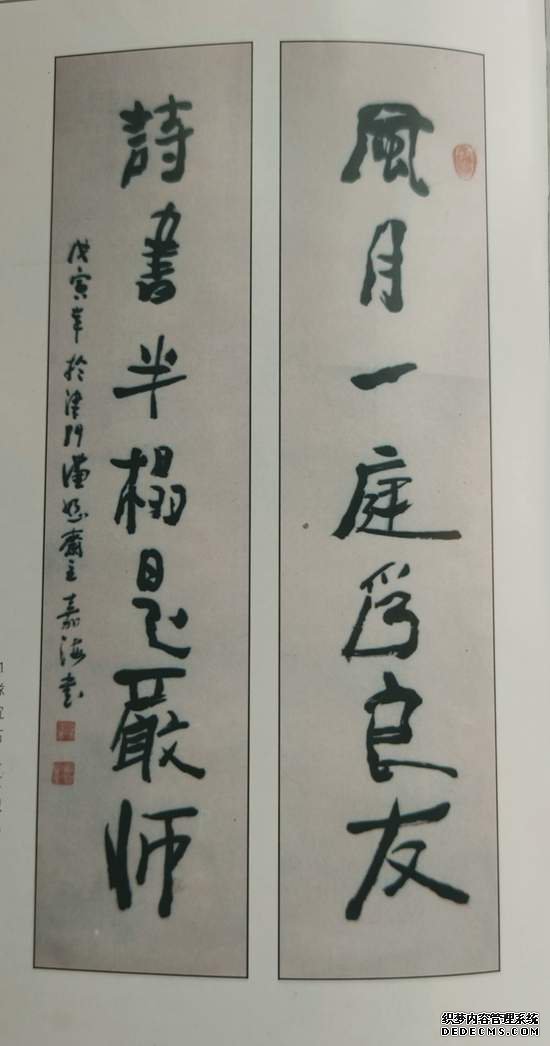 風月一庭為良友
詩書半榻是嚴师
戊寅年於津門
齋主嘉海書
织梦内容管理系统
DEDECMS.COM